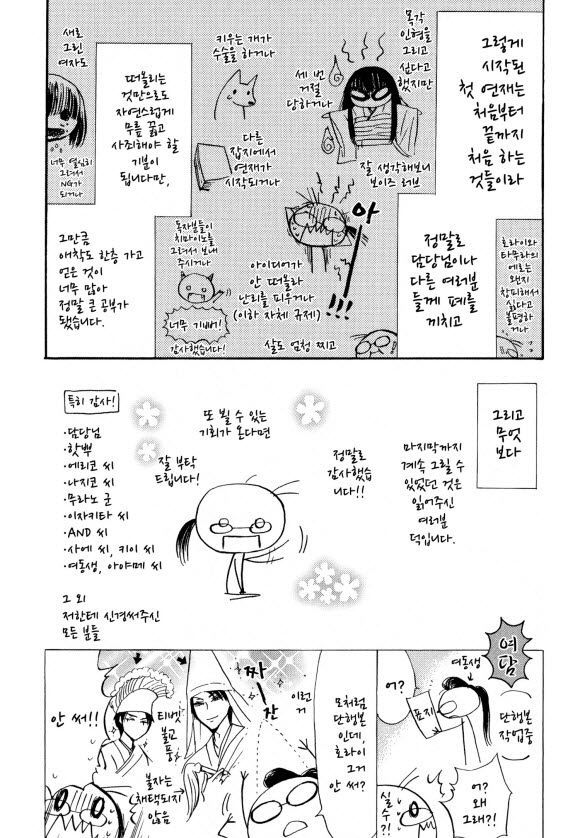 그렇게
시작된
첫 연재는
처음부터
끝까지
처음 하는
것들이라
목각
인형을
그리고
싶다고
했지만
세 번
거절
당하거나
키우는 개가
수술을 하거나
잘 생각해보니
보이즈 러브
다른
잡지에서
연재가
시작되거나
떠올리는
것만으로도
자연스럽게
무릎 꿇고
사죄해야 할
기분이
됩니다만,
새로
그린
여자도
너무 열심히
그려서
NG가
되거나
호라이와
타무라의
에로는
왠지
창피해서
싫다고
불평하
거나
정말로
담당님이나
다른 여러분
들께 폐를
끼치고
아
!!!
아이디어가
안 떠올라
난리를 피우거나
(이하 자체 규제)
살도 엄청 찌고
독자분들이
치마이노를
그려서 보내
주시거나
너무 기뻐!
감사했습니다!
그만큼
애착도 한층 가고
얻은 것이
너무 많아
정말 큰 공부가
됐습니다.
그리고
무엇
보다
마지막까지
계속 그릴 수
있었던 것은
읽어주신
여러분
덕입니다.
정말로
감사했습
니다!!
또 뵐 수 있는
기회가 온다면
잘 부탁
드립니다!
특히 감사!
·담당님
·핫뿌
·에리코 씨
·나지코 씨
·무라노 군
·이자키타 씨
·AND 씨
·사에 씨, 키이 씨
·여동생, 아야메 씨
그 외
저한테 신경써주신
모든 분들
여담
여동생
어?
표지
단행본
작업중
어?
왜
그래?!
실수?!
모처럼
단행본
인데
호라이 그거
안 써?
이런
거
짜
잔
티벳
불교
풍
불자는
(채택되지
않음
안 써!!